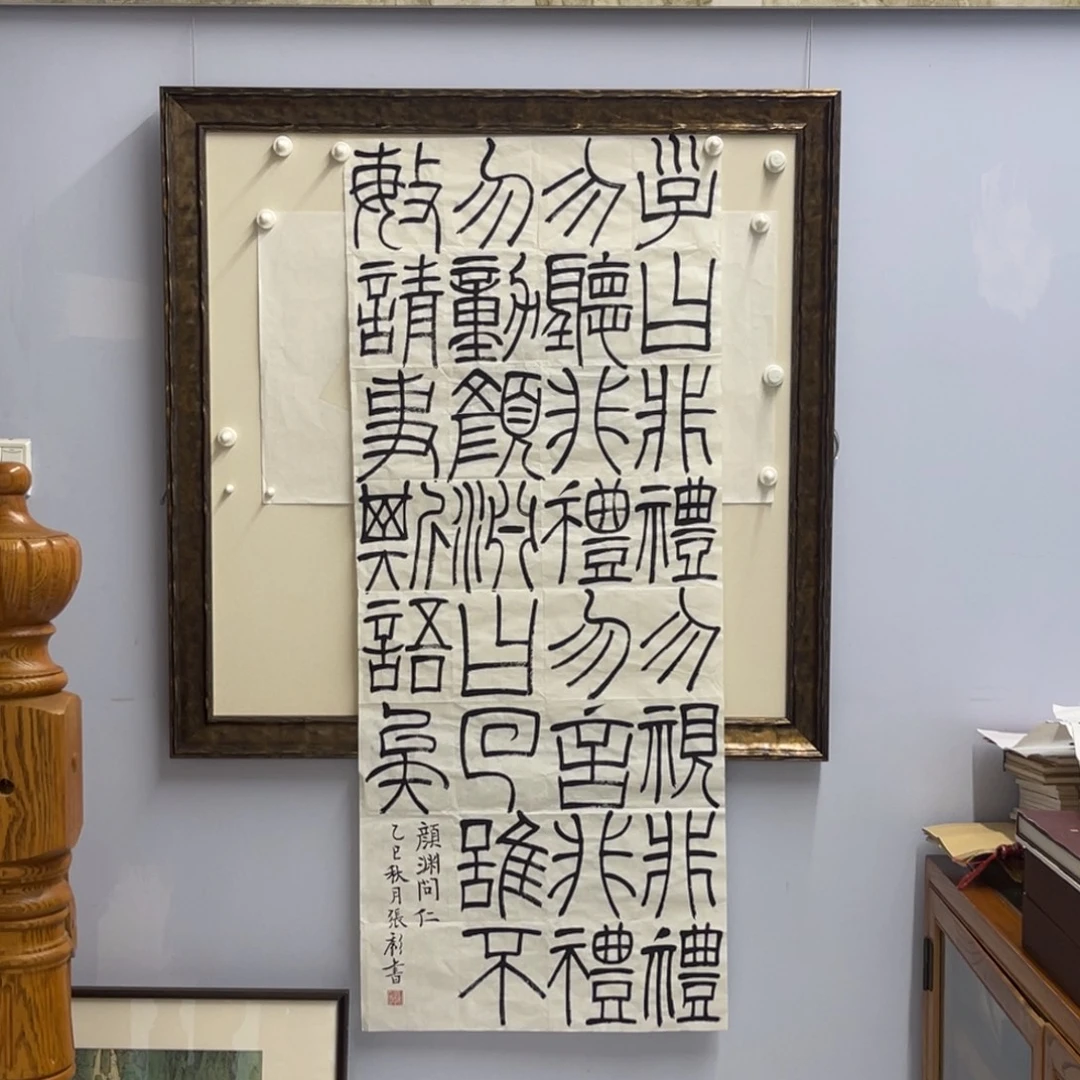 子曰非禮勿視非禮
勿聽非禮勿言非禮
勿動顏淵曰回雖不
敏請事斯語矣
顏淵問仁
乙巳秋月張書